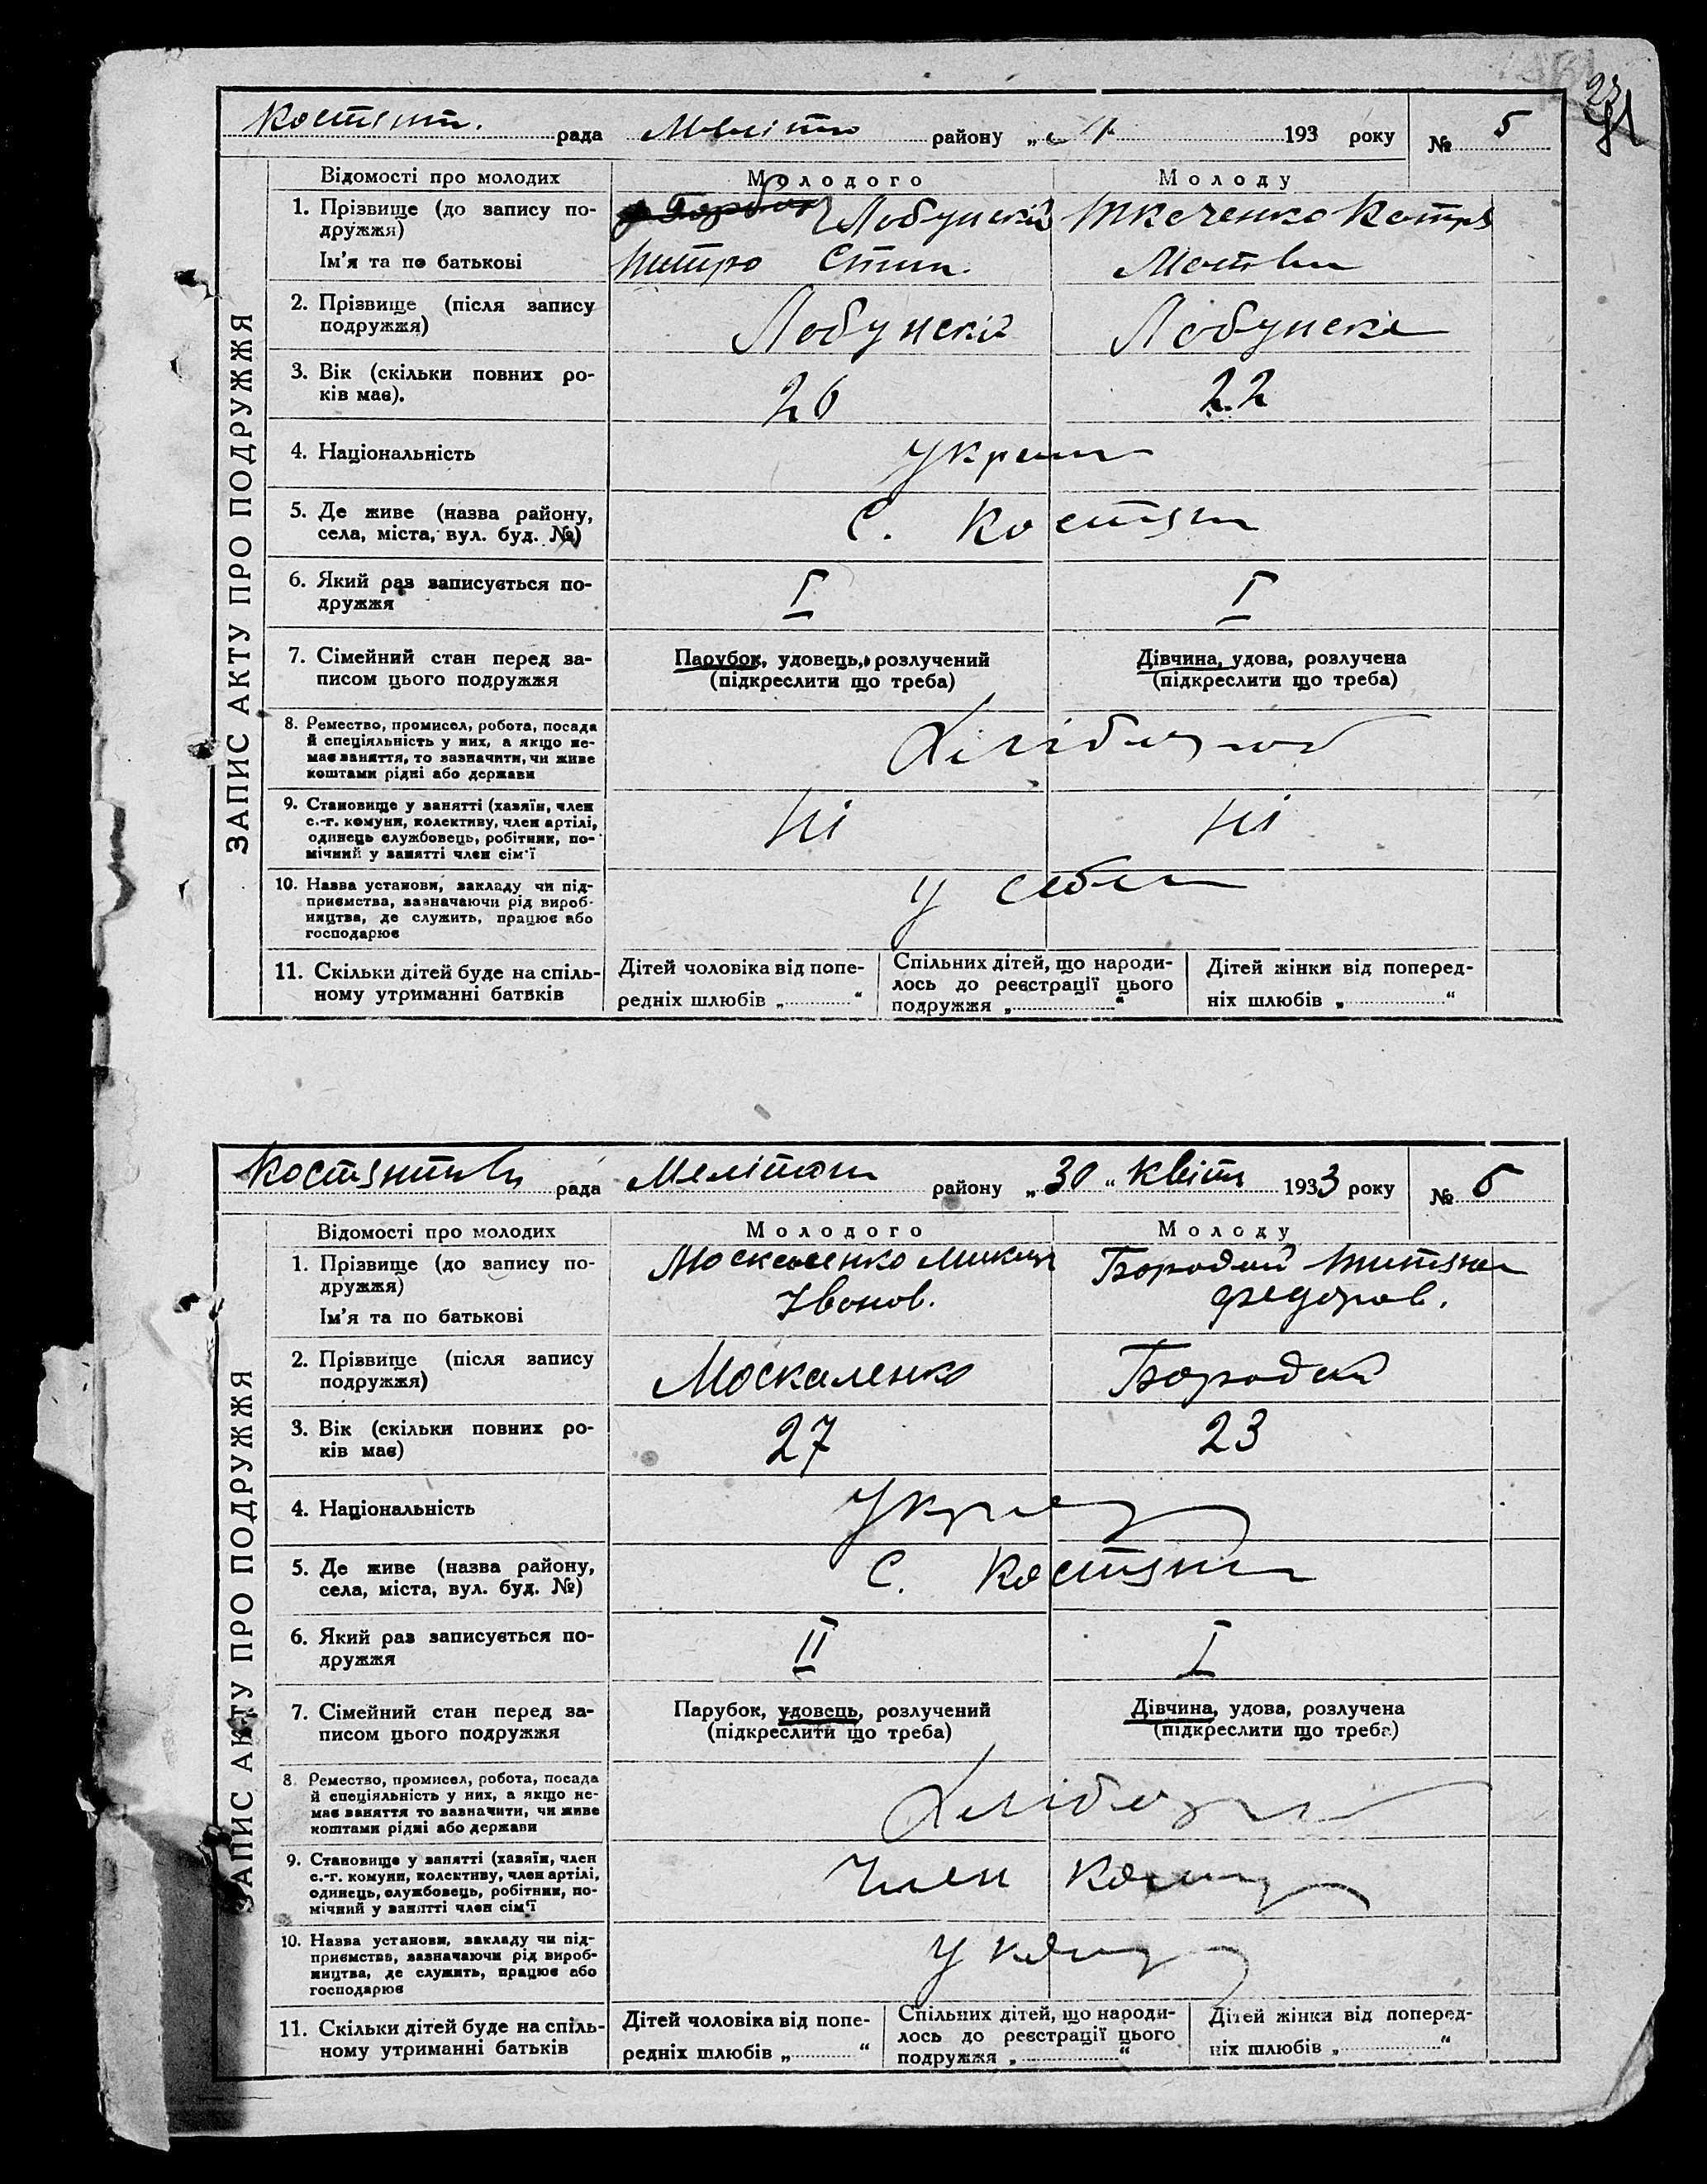 Костянт. рада Меліто району „ 193 року № 5
Відомості про молодих Молодого Молоду
1. Прізвище (до запису по-
дружжя)
Лобунский Ткаченко Катря
Ім'я та по батькові
2. Прізвище (після запису
подружжя)
Лобунский Лобунска
3. Вік (скільки повних ро-
ків має).
26 22
4. Національність
Украин
5. Де живе (назва району,
села, міста, вул. буд. №)
С. Костян
6. Який раз записується по-
дружжя
I I
7. Сімейний стан перед за-
писом цього подружжя
Парубок, удовець, розлучений
(підкреслити що треба)
Дівчина, удова, розлучена
(підкреслити що треба)
8. Ремество, промисел, робота, посада
й спеціяльність у них, а якщо не-
має заняття, то зазначити, чи живе
коштами рідні або держави
9. Становище у занятті (хазяїн, член
с.-г. комуни, колективу, член артілі,
одинець службовець, робітник, по-
мічний у занятті член сім'ї
Ні Ні
10. Назва установи, закладу чи під-
приємства, зазначаючи рід вироб-
ництва, де служить, працює або
господарює
у себе
11. Скільки дітей буде на спіль-
ному утриманні батьків
Дітей чоловіка від попе-
редніх шлюбів „ “
Спільних дітей, що народи-
лось до реєстрації цього
подружжя „ “
Дітей жінки від поперед-
ніх шлюбів „ “
ЗАПИС АКТУ ПРО ПОДРУЖЖЯ
Костянтів рада Мелітоп району „30“ Квітн 1933 року № 6
Відомості про молодих Молодого Молоду
1. Прізвище (до запису по-
дружжя)
Москаленко Микол Бородай Титяна
Ім'я та по батькові
Іванов. Федоров.
2. Прізвище (після запису
подружжя)
Москаленко Бородай
3. Вік (скільки повних ро-
ків має)
27 23
4. Національність
5. Де живе (назва району,
села, міста, вул. буд. №)
С. Костян
6. Який раз записується по-
дружжя
II I
7. Сімейний стан перед за-
писом цього подружжя
Парубок, удовець, розлучений
(підкреслити що треба)
Дівчина, удова, розлучена
(підкреслити що треба)
8. Ремество, промисел, робота, посада
й спеціяльність у них, а якщо не-
має заняття то зазначити, чи живе
коштами рідні або держави
9. Становище у занятті (хазяїн, член
с.-г. комуни, колективу, член артілі,
одинець, службовець, робітник, по-
мічний у занятті член сім'ї
Член
10. Назва установи, закладу чи під-
приємства, зазначаючи рід вироб-
ництва, де служить, працює або
господарює
у
11. Скільки дітей буде на спіль-
ному утриманні батьків
Дітей чоловіка від попе-
редніх шлюбів „ “
Спільних дітей, що народи-
лось до реєстрації цього
подружжя „ “
Дітей жінки від поперед-
ніх шлюбів „ “
ЗАПИС АКТУ ПРО ПОДРУЖЖЯ